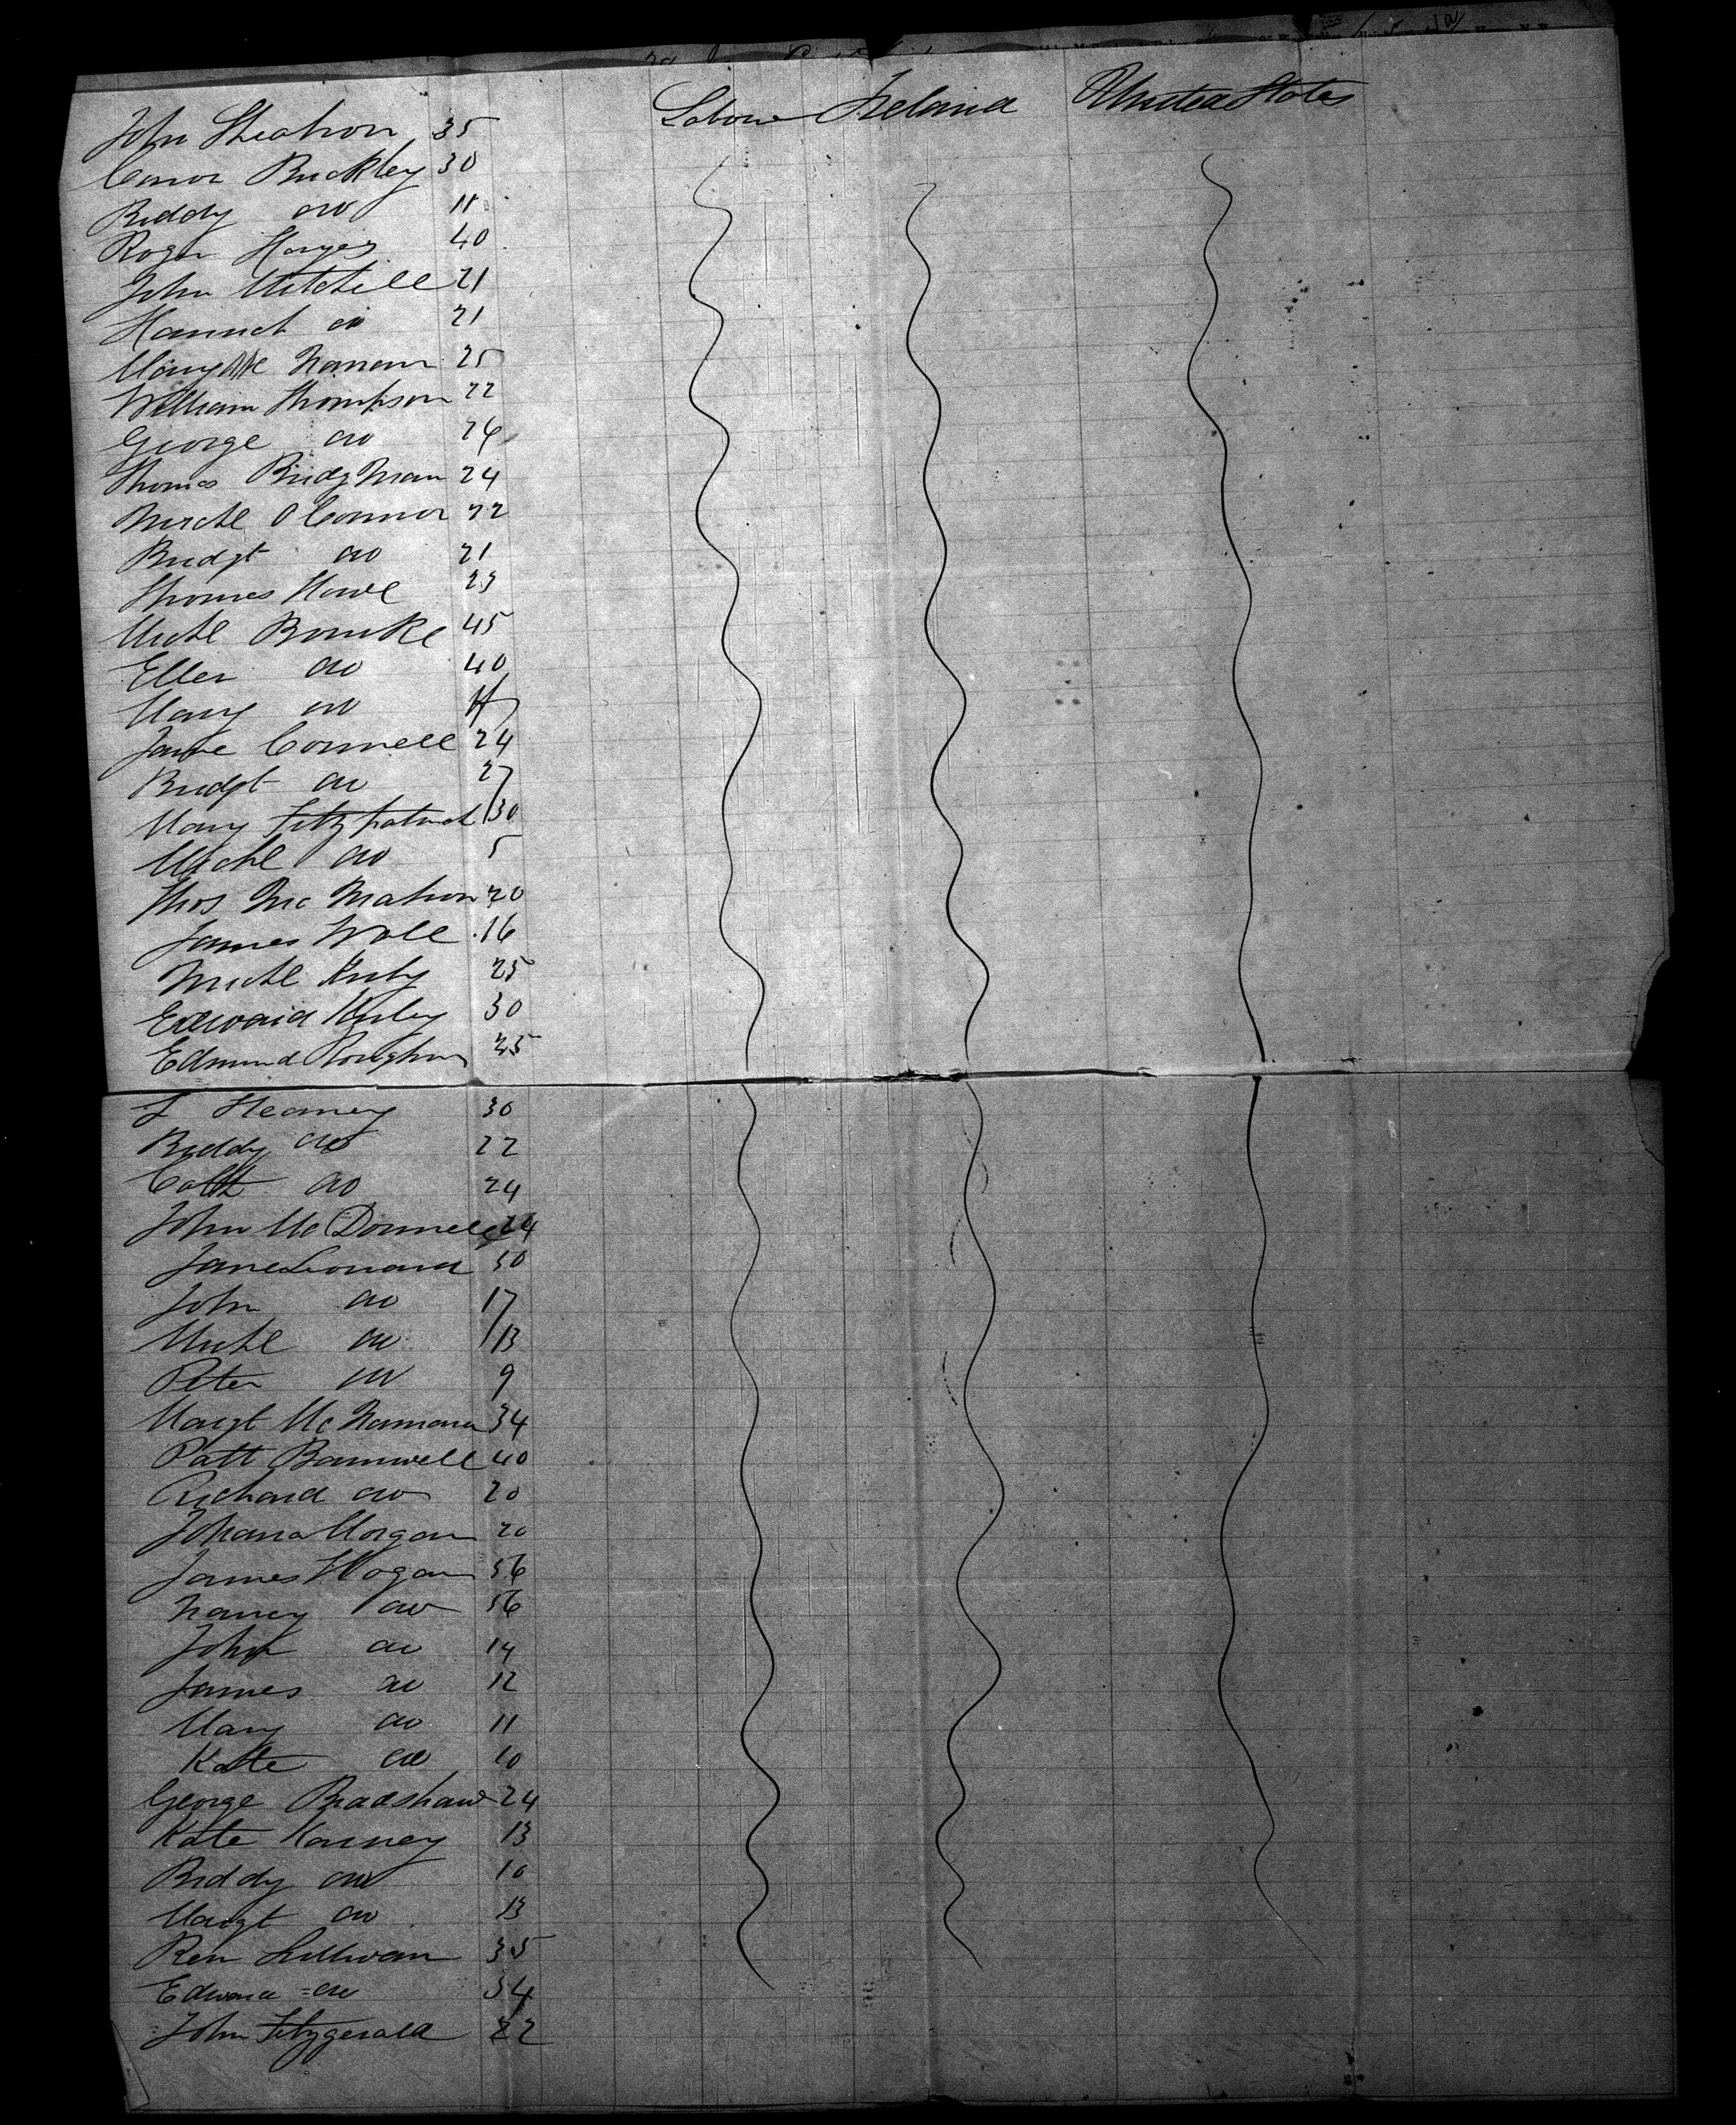 John Sheahon 35 Labour Ireland United States
Conor Buckley 30
Biddy do 11
Roger Hayes 40
John Mitchell 21
Hannah do 21
Mary 25
William Thompson 22
George do 26
Thomas BridgMan 24
Michl O Connor 22
Bridgt do 21
Thomas Howe 23
Michl Bourke 45
Ellen do 40
Mary do
Jane Connell 24
Bridgt do 27
Mary Fitzpatrick 30
Michl do 5
Thos Mc Mahon 20
James Wall 16
Michl Kirby 25
Edward Kirby 30
Edmund 25
J Heaney 30
Biddy do 22
Cath do 24
John McDonnell 24
Jane Leonard 50
John do 17
Michl do 13
Peter do 9
Margt McNamara 34
Patt Bamwell 40
Richard do 20
Johana Morgan 20
James Hogan 56
Nancy do 56
John do 14
James do 12
Mary do 11
Kate do 10
George Bradshaw 24
Kate Kanney 13
Biddy do 10
Margt do 13
Ren Sullivan 35
Edward do 34
John Fitzgerald 22